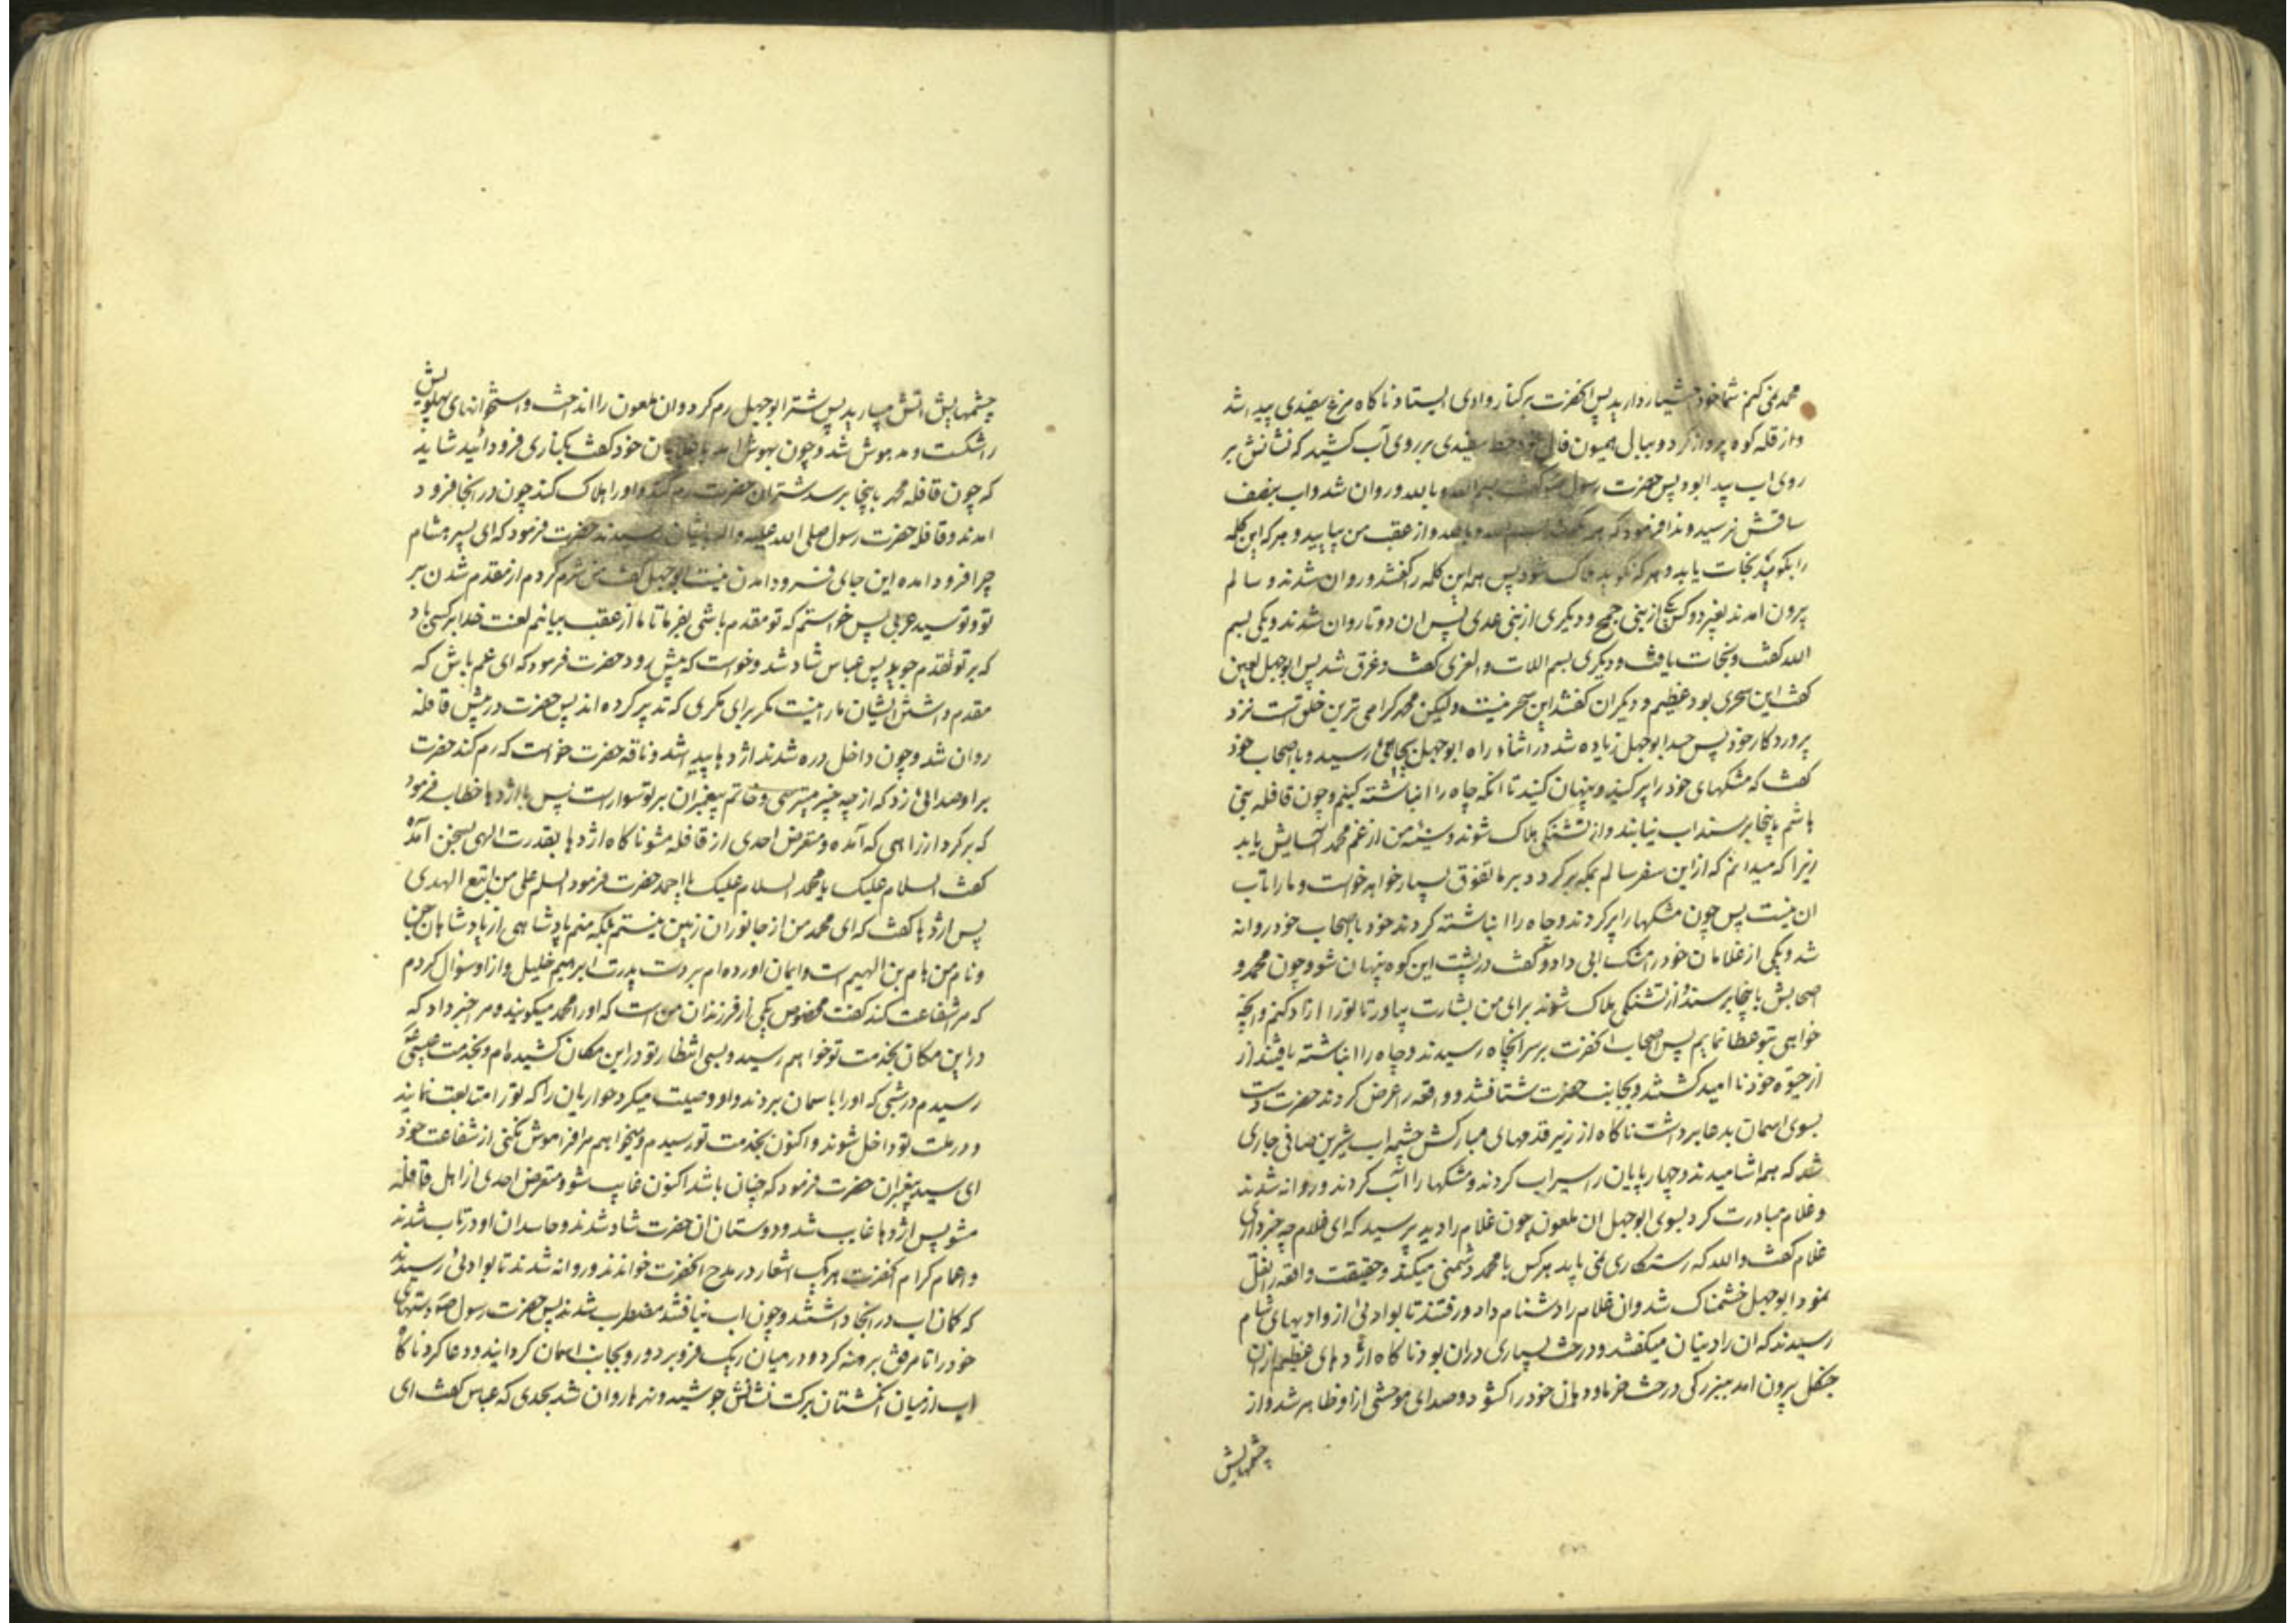 محمد نمی کنم شما خود اختیار دارید پس انحضرت بر کنار وادی ایستاد ناکاه مرغ سفیدی پیدا شد
و از قله کوه پرواز کرد و ببال همیون فال خود خط سفیدی بر روی آب کشید که نشانش بر
روی اب پیدا بود پس حضرت رسول ص کفت بسم الله و بالله و روان شد و اب بنصف
ساقش نرسید و ندا فرمود که همه بکوئید بسم الله و بالله و از عقب من بیایید و هر که این کلمه
را بکوید نجات یابد و هر که نکوید هلاک شود پس همه این کلمه را کفتند و روان شدند و سالم
بیرون امدند بغیر دو کس یکی از بنی جمح و دیکری از بنی عدی پس ان دو تا روان شدند و یکی بسم
الله کفت و نجات یافت و دیکری بسم اللات والعزی کفت و غرق شد پس ابوجهل لعین
کفت این سحری بود عظیم و دیکران کفتند این سحر نیست ولیکن محمد کرامی ترین خلق است نزد
پروردکار خود پس حسد ابوجهل زیاده شد در اثناء راه ابوجهل بچاهی رسید و باصحاب خود
کفت که مشکهای خود را پر کنید و پنهان کنید تا انکه چاه را انباشته کنیم و چون قافله بنی
هاشم باینجا برسند اب نیابند و از تشنکی هلاک شوند و سینه من از غم محمد اسایش یابد
زیرا که میدانم که از این سفر سالم بمکه بر کردد بر ما تفوق بسیار خواهد خواست و ما را تاب
ان نیست پس چون مشکها را پر کردند و چاه را انباشته کردند خود با اصحاب خود روانه
شد و یکی از غلامان خود را مشک ابی داد و کفت در پشت این کوه پنهان شو و چون محمد و
اصحابش باینجا برسند و از تشنکی هلاک شوند برای من بشارت بیاور تا تو را ازاد کنم و انچه
خواهی بتو عطا نمایم پس اصحاب انحضرت بر سر انچاه رسیدند و چاه را انباشته یافتند از
از حیوه خود نا امید کشتند و بجانب حضرت شتافتند و واقعه را عرض کردند حضرت دست
بسوی اسمان بدعا برداشت ناکاه از زیر قدمهای مبارکش چشمه اب شیرین صافی جاری
شد که همه اشامیدند و چهارپایان را سیراب کردند و مشکها را آب کردند و روانه شدند
و غلام مبادرت کرد بسوی ابوجهل ان ملعون چون غلام را دید پرسید که ای غلام چه خبر داری
غلام کفت والله که رستکاری نمی یابد هر کس با محمد دشمنی میکند و حقیقت واقعه را نقل
نمود ابوجهل خشمناک شد و ان غلام را دشنام داد و رفتند تا بوادئی از وادیهای شام
رسیدند که ان را ذبیان میکفتند و درخت بسیاری دران بود ناکاه اژدهای عظیم ازان
جنکل بیرون امد ببزرکی درخت خرما و دهان خود را کشود و صدای موحشی از او ظاهر شد و از
چشمهایش
چشمهایش اتش میبارید پس شتر ابوجهل رم کرد و ان ملعون را انداخت و استخوانهای پهلویش
را شکست و مدهوش شد و چون بهوش امد با غلامان خود کفت بکناری فرود ائید شاید
که چون قافله محمد باینجا برسد شتران حضرت رم کنند و او را هلاک کنند چون در انجا فرود
امدند و قافله حضرت رسول صلی الله علیه و اله بایشان رسیدند حضرت فرمود که ای پسر هشام
چرا فرود امده این جای فرود امدن نیست ابوجهل کفت من شرم کردم از مقدم شدن بر
تو و تو سید عربی پس خواستم که تو مقدم باشی بفرما تا ما از عقب بیائیم لعنت خدا بر کسی باد
که بر تو تقدم جوید پس عباس شاد شد و خواست که پیش رود حضرت فرمود که ای عم باش که
مقدم داشتن ایشان ما را نیست مکر برای مکری که تدبیر کرده اند پس حضرت در پیش قافله
روان شد و چون داخل دره شدند اژدها پیدا شد و ناقه حضرت خواست که رم کند حضرت
بر او صدائی زد که از چه چیز میترسی و خاتم پیغمبران بر تو سوار است پس با اژدها خطاب فرمود
که بر کرد از راهی که آمده و متعرض احدی از قافله مشو ناکاه اژدها بقدرت الهی بسخن آمد
کفت السلام علیک یا محمد السلام علیک یا احمد حضرت فرمود السلم علی من اتبع الهدی
پس اژدها کفت که ای محمد من از جانوران زمین نیستم بلکه منم پادشاهی از پادشاهان جن
و نام من هام بن الهیم است و ایمان اورده ام بر دست پدرت ابرهیم خلیل و از او سؤال کردم
که مرا شفاعت کند کفت مخصوص یکی از فرزندان من است که او را محمد میکویند و مرا خبر داد که
در این مکان بخدمت تو خواهم رسید و بسی انتظار تو در این مکان کشیده ام و بخدمت عیسی
رسیدم در شبی که او را باسمان بردند و او وصیت میکرد حواریان را که تو را متابعت نمایند
و در ملت تو داخل شوند و اکنون بخدمت تو رسیدم و میخواهم مرا فراموش نکنی از شفاعت خود
ای سید پیغمبران حضرت فرمود که چنان باشد اکنون غایب شو و متعرض احدی از اهل قافله
مشو پس اژدها غایب شد و دوستان ان حضرت شاد شدند و حاسدان او در تاب شدند
و اعمام کرام انحضرت هر یک اشعار در مدح انحضرت خواندند و روانه شدند تا بوادئی رسیدند
که کمان اب در انجا داشتند و چون اب نیافتند مضطرب شدند پس حضرت رسول ص دستهای
خود را تا مرفق برهنه کرد و در میان ریک فرو برد و رو بجانب اسمان کردانید و دعا کرد ناکاه
اب از میان انکشتان برکت نشانش جوشید و نهرها روان شد بحدی که عباس کفت ای